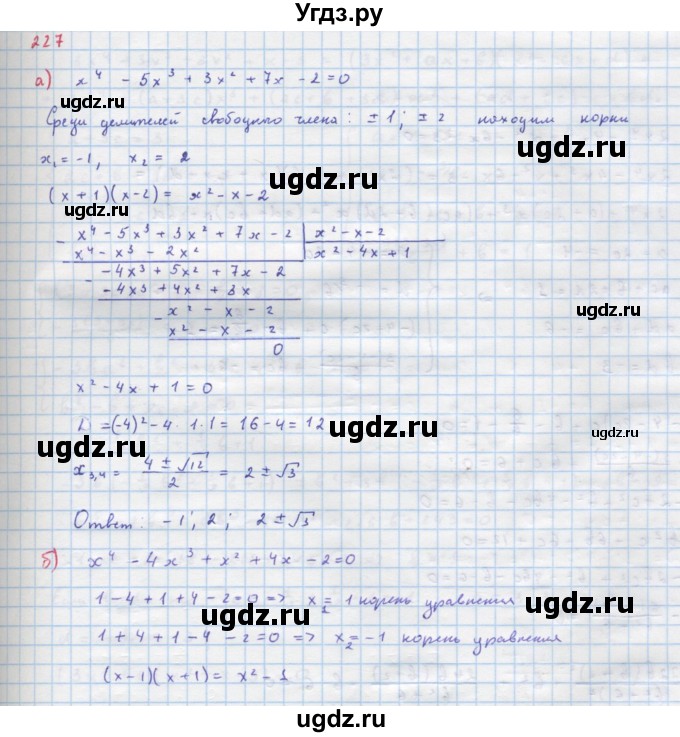 Угдз.ру
227
а) x⁴ - 5x³ + 3x² + 7x - 2 = 0
ugdz.ru
Среди делителей свободного члена: ± 1; ± 2 находим корни
ugdz.ru
x₁ = -1, x₂ = 2
ugdz.ru
(x + 1)(x - 2) = x² - x - 2
x⁴ - 5x³ + 3x² + 7x - 2 | x² - x - 2
x⁴ - x³ - 2x² x² - 4x + 1
ugdz.ru
- 4x³ + 5x² + 7x - 2
- 4x³ + 4x² + 8x
x² - x - 2
x² - x - 2
ugdz.ru
0
x² - 4x + 1 = 0
D = (-4)² - 4 · 1 · 1 = 16 - 4 = 12
ugdz.ru
ugdz.ru
x₃,₄ = (4 ± √12)/2 = 2 ± √3
Ответ: -1; 2; 2 ± √3
ugdz.ru
б) x⁴ - 4x³ + x² + 4x - 2 = 0
1 - 4 + 1 + 4 - 2 = 0 => x₁ = 1 корень уравнения
ugdz.ru
ugdz.ru
1 + 4 + 1 - 4 - 2 = 0 => x₂ = -1 корень уравнения
(x - 1)(x + 1) = x² - 1
ugdz.ru
ugdz.ru